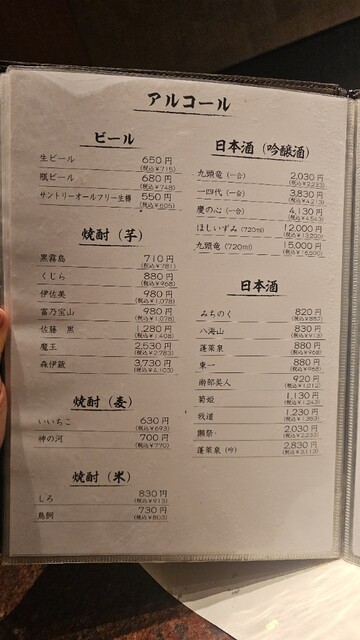 アルコール
ビール
生ビール 650円
(税込¥715)
瓶ビール 680円
(税込¥748)
サントリーオールフリー生樽 550円
(税込¥605)
焼酎(芋)
黒霧島 710円
(税込¥781)
くじら 880円
(税込¥968)
伊佐美 980円
(税込¥1,078)
富乃宝山 980円
(税込¥1,078)
佐藤 黒 1,280円
(税込¥1,408)
魔王 2,530円
(税込¥2,783)
森伊蔵 3,730円
(税込¥4,103)
焼酎(麦)
いいちこ 630円
(税込¥693)
神の河 700円
(税込¥770)
焼酎(米)
しろ 830円
(税込¥913)
鳥飼 730円
(税込¥803)
日本酒(吟醸酒)
九頭竜(一合) 2,030円
(税込¥2,233)
一四代(一合) 3,830円
(税込¥4,213)
慶の心(一合) 4,130円
(税込¥4,543)
ほしいずみ(720ml) 12,000円
(税込¥13,200)
九頭竜(720ml) 15,000円
(税込¥16,500)
日本酒
みちのく 820円
八海山 830円
(税込¥913)
蓬莱泉 880円
(税込¥968)
東一 880円
(税込¥968)
南部美人 920円
(税込¥1,012)
菊姫 1,130円
(税込¥1,243)
我道 1,230円
(税込¥1,353)
獺祭 2,030円
(税込¥2,233)
蓬莱泉(吟) 2,830円
(税込¥3,113)